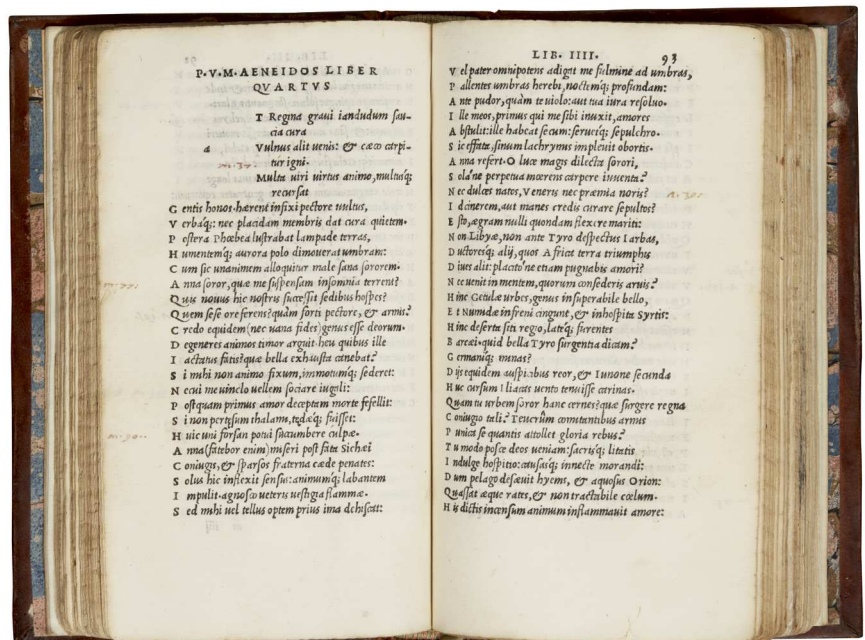 P·V·M·AENEIDOS LIBER
QVARTVS
T Regina graui iandudum sau-
cia cura
a Vulnus alit uenis: & cæco carpi-
tur igni·
Multa uiri uirtus animo, multaq;
recursat
G entis honos·hærent infixi pectore uultus,
V erbaq;: nec placidam membris dat cura quietem·
P ostera Phœbea lustrabat lampade terras,
H umentemq; aurora polo dimouerat umbram:
C um sic unanimem alloquitur male sana sororem·
A nna soror, quæ me suspensam insomnia terrent?
Q uis nouus hic nostris successit sedibus hospes?
Q uem sese ore ferens? quàm forti pectore, & armis?
C redo equidem (nec uana fides) genus esse deorum·
D egeneres animos timor arguit·heu quibus ille
I actatus fatis? quæ bella exhausta canebat?
S i mihi non animo fixum, immotumq; sederet:
N e cui me uinclo uellem sociare iugali:
P ostquam primus amor deceptam morte fefellit:
S i non pertæsum thalami, tædæq; fuisset:
H uic uni forsan potui succumbere culpæ·
A nna (fatebor enim) miseri post fata Sichæi
C oniugis, & sparsos fraterna cæde penates:
S olus hic inflexit sensus: animumq; labantem
I mpulit·agnosco ueteris uestigia flammæ·
S ed mihi uel tellus optem prius ima dehiscat:
LIB· IIII· 93
V el pater omnipotens adigat me fulmine ad umbras,
P allentes umbras herebi, noctemq; profundam:
A nte pudor, quàm te uiolo: aut tua iura resoluo·
I lle meos, primus qui me sibi iunxit, amores
A bstulit: ille habeat secum: serueiq; sepulchro·
S ic effata, sinum lachrymis impleuit obortis·
A nna refert·O luce magis dilecta sorori,
S ola'ne perpetua mœrens carpere iuuenta?
N ec dulces natos, Veneris nec præmia noris?
I d cinerem, aut manes credis curare sepultos?
E sto, ægram nulli quondam flexere mariti:
N on Libyæ, non ante Tyro despectus Iarbas,
D uctoresq; alij, quos Africa terra triumphis
D iues alit: placito'ne etiam pugnabis amori?
N ec uenit in mentem, quorum consederis aruis?
H inc Getulæ urbes, genus insuperabile bello,
E t Numidæ infreni cingunt, & inhospita Syrtis:
H inc deserta siti regio, lateq; furentes
B arcæi·quid bella Tyro surgentia dicam?
G ermaniq; minas?
D ijs equidem auspicibus reor, & Iunone secunda
H uc cursum Iliacas uento tenuisse carinas·
Q uam tu urbem soror hanc cernes? quæ surgere regna
C oniugio tali? Teucrûm comitantibus armis
P unica se quantis attollet gloria rebus?
T u modo posce deos ueniam: sacrisq; litatis
I ndulge hospitio: causasq; innecte morandi:
D um pelago desæuit hyems, & aquosus Orion:
Q uassatæque rates, & non tractabile cœlum·
H is dictis incensum animum inflammauit amore: